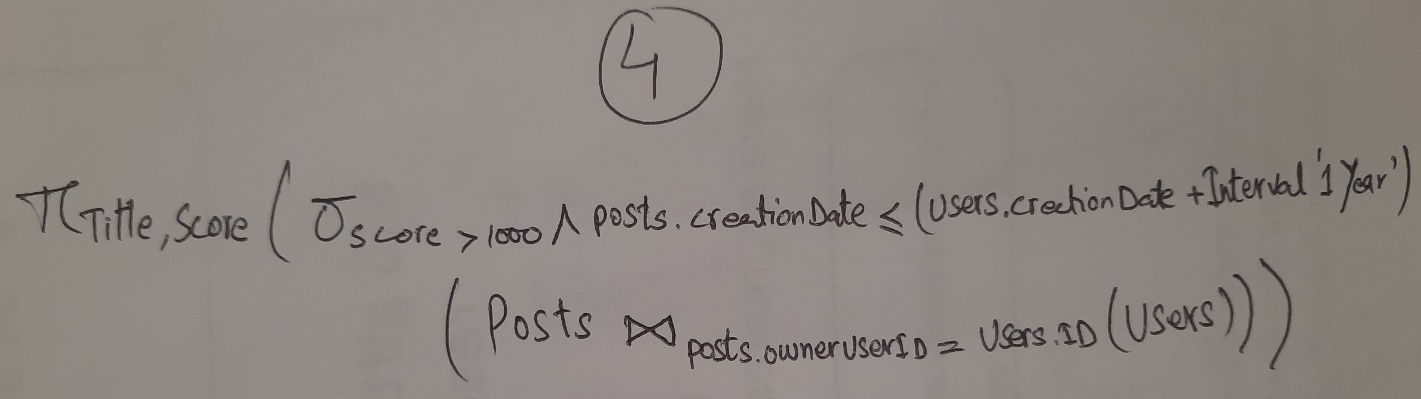 4
π Title, Score ( σ score > 1000 ∧ posts.creationDate ≤ (users.crectionDate + Interval '1 Year')
( Posts ⋈ posts.owneruserID = Users.ID (Users)))